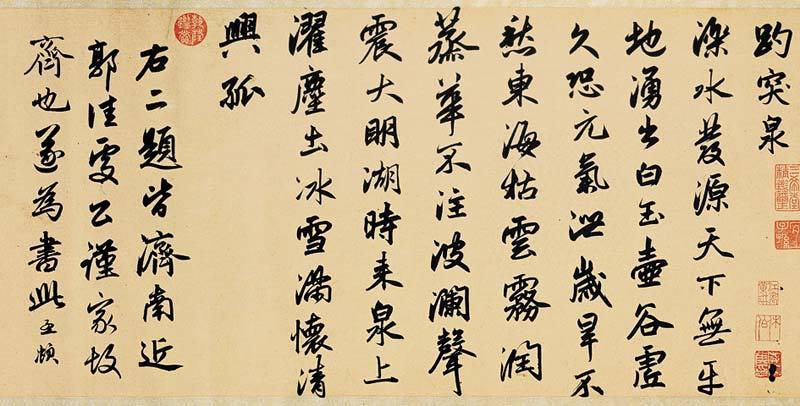 趵突泉
濼水發源天下無平
地湧出白玉壺谷虛
久恐元氣泄歲旱不
愁東海枯雲霧潤
蒸華不注波瀾聲
震大明湖時来泉上
濯塵土冰雪滿懷清
興孤
右二題皆濟南近
郭佳處公謹家故
齊也遂為書此孟頫
三希堂精鑑璽
宜子孫